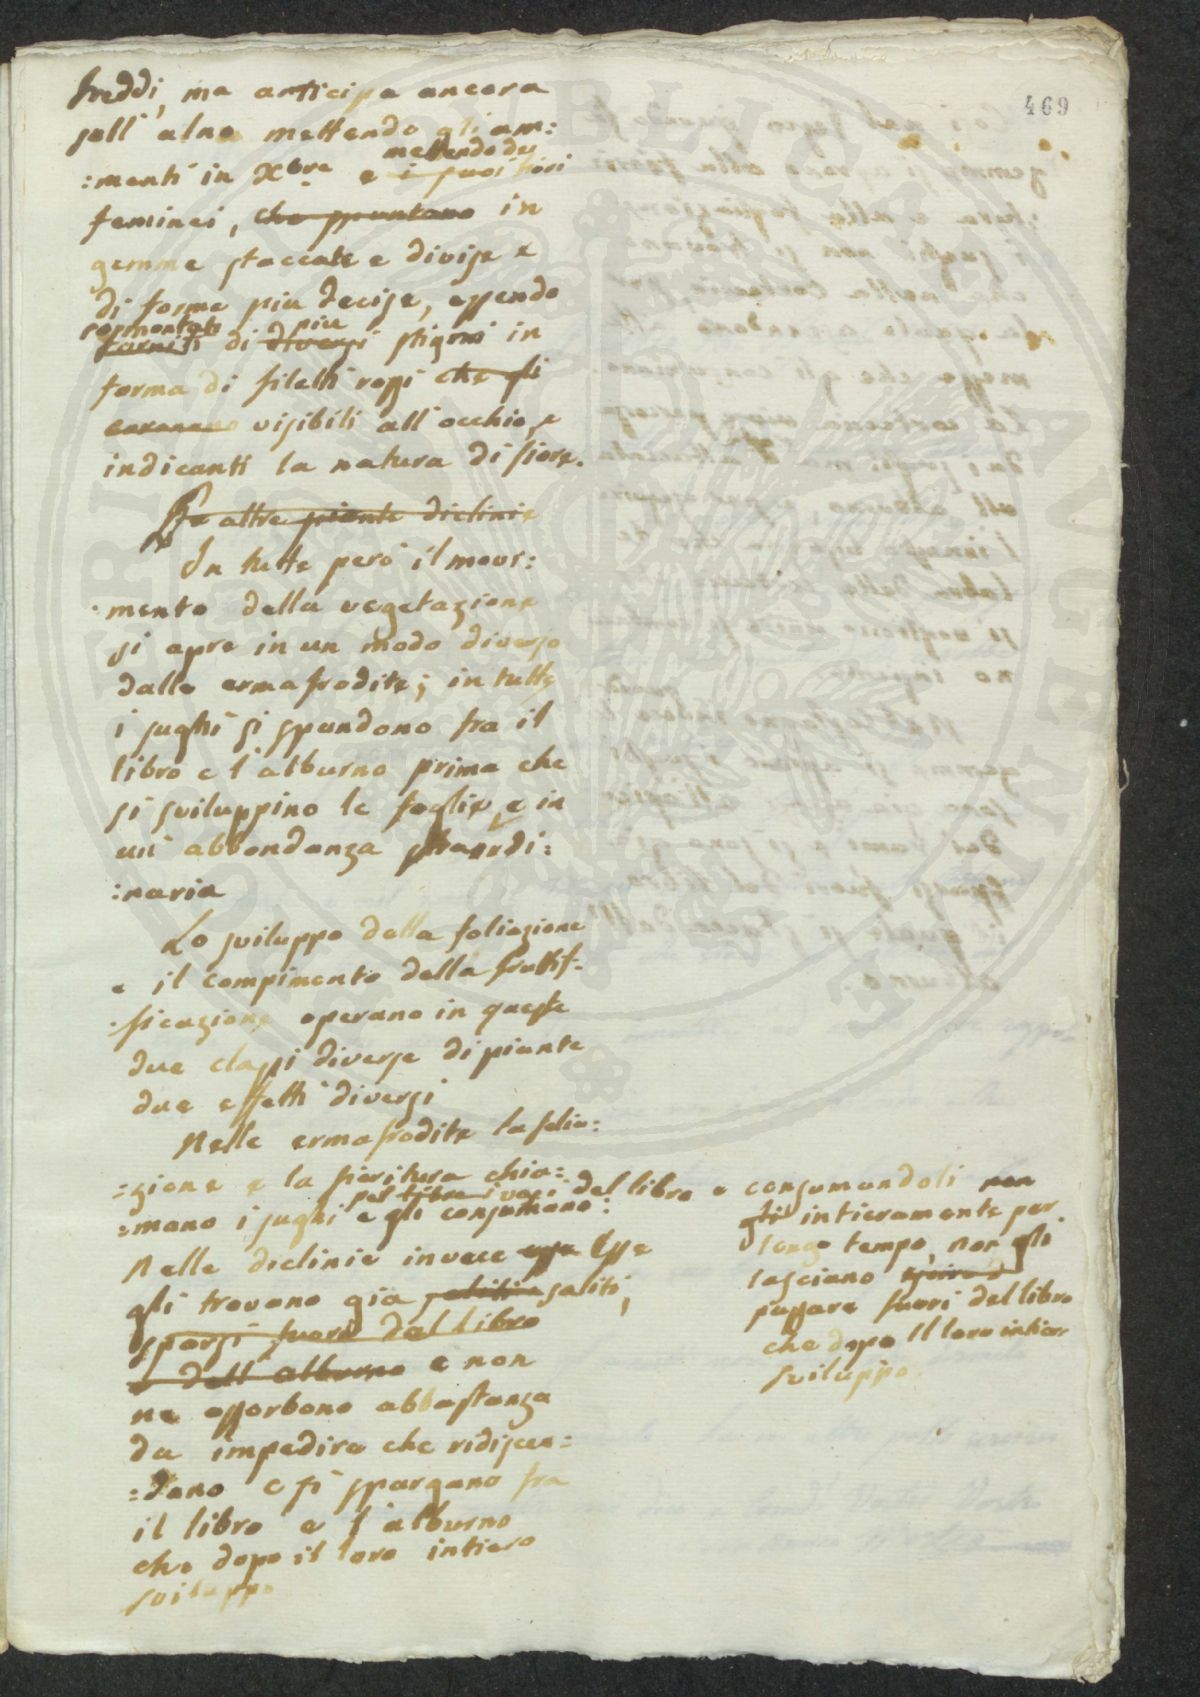 469
freddi, ma anticipa ancora
sull'alno mettendo gli am:
:menti in Xbre e mettendo
i suoi fiori
feminei, che spuntano in
gemme staccate e divise e
di forme piu decise, essendo
sormontati
di diversi piu stigmi in
forma di filetti rossi che si
visibili all'occhio, e
indicanti la natura di fiore.
Le altre piante diclinie
In tutte però il movi:
:mento della vegetazione
si apre in un modo diverso
dalle ermafrodite; in tutte
i sughi si spandono fra il
libro e l'alburno prima che
si sviluppino le foglie, e in
un'abbondanza straordi:
:naria
Lo sviluppo della foliazione
e il compimento della fruttif-
:ficazione operano in queste
due classi diverse di piante
due effetti diversi
Nelle ermafrodite la folia:
:zione e la fioritura chia:
:mano i sughi pel libro e gli consumano:
del libro e consumandoli non
gli intieramente per
lungo tempo, non gli
lasciano
passare fuori del libro
che dopo il loro intier
sviluppo.
Nelle diclinie invece esse Esse
gli trovano già saliti saliti,
sparsi fuori del libro
e dell'alburno e non
ne assorbono abbastanza
da impedire che ridiscen:
:dano e si spargano fra
il libro e l'alburno
che dopo il loro intiero
sviluppo